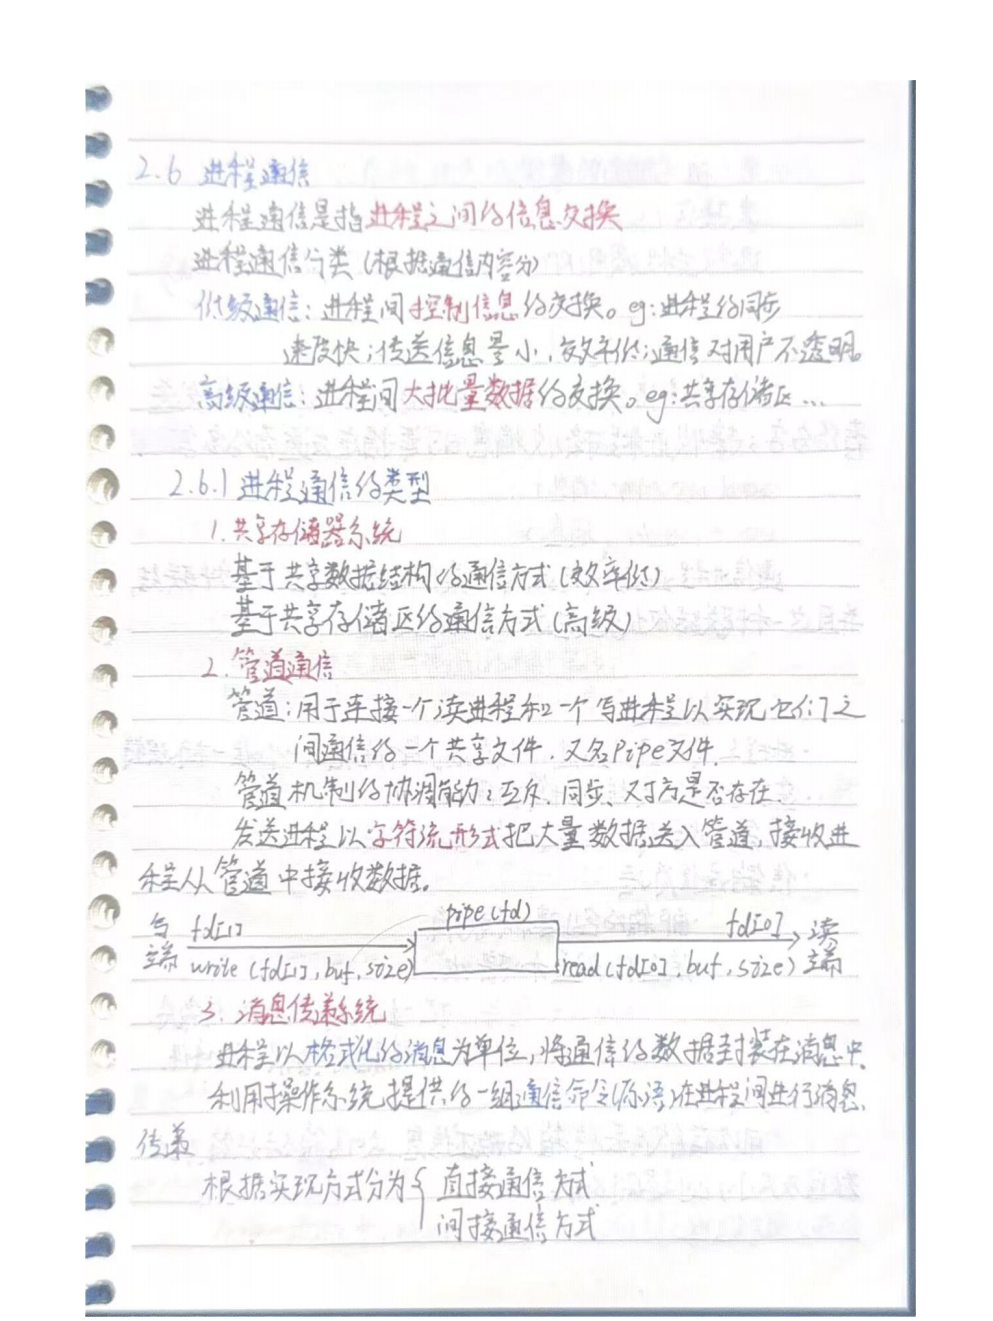 2.6 进程通信
进程通信是指进程之间的信息交换
进程通信分类(根据通信内容分)
低级通信:进程间控制信息的交换。eg:进程的同步
速度快;传送信息量小,效率低;通信对用户不透明。
高级通信:进程间大批量数据的交换。eg:共享存储区...
2.6.1 进程通信的类型
1.共享存储器系统
基于共享数据结构的通信方式(效率低)
基于共享存储区的通信方式(高级)
2.管道通信
管道:用于连接一个读进程和一个写进程以实现它们之
间通信的一个共享文件.又名pipe文件.
管道机制的协调能力:互斥、同步、对方是否存在.
发送进程以字符流形式把大量数据送入管道,接收进
程从管道中接收数据。
写端 fd[1] pipe(fd) fd[0] 读端
write(fd[1],buf,size) read(fd[0],buf,size)
3.消息传递系统
进程以格式化的消息为单位,将通信的数据封装在消息中,
利用操作系统提供的一组通信命令(原语)在进程间进行消息
传递
根据实现方式分为{直接通信方式
间接通信方式